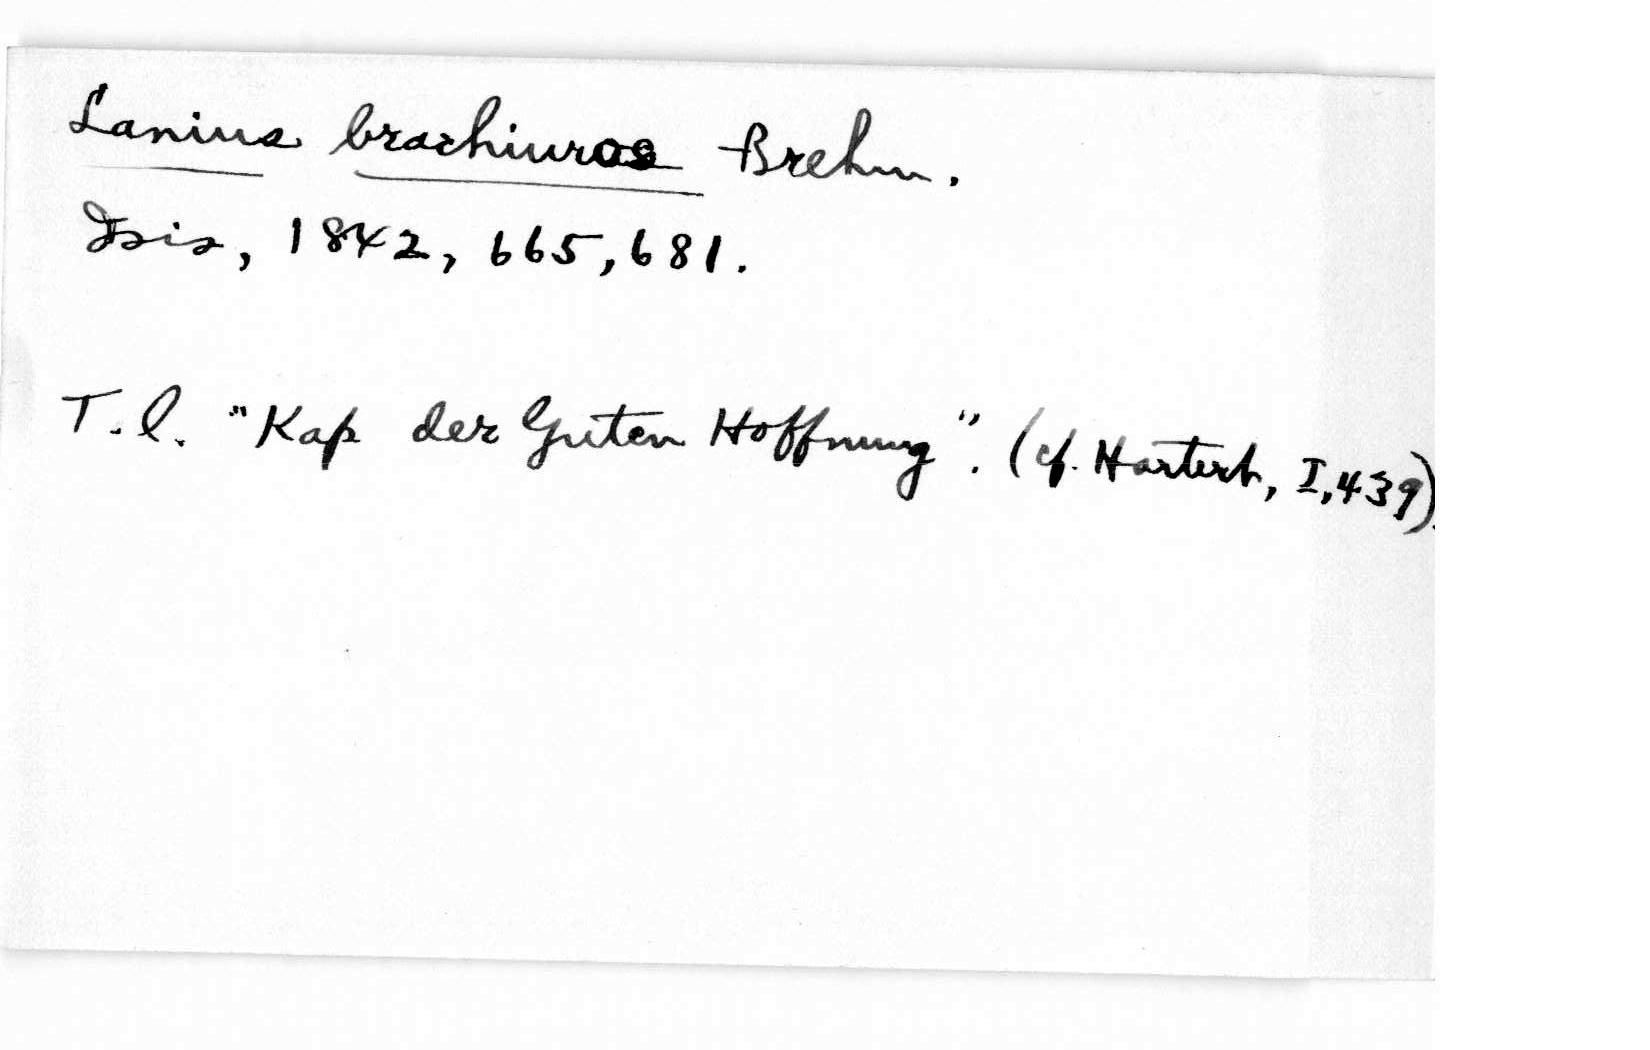 Lanius brachiuros Brehm.
Isis, 1842, 665, 681.
T. l. "Kap der Guten Hoffnung". (cf. Hartert, I, 439).